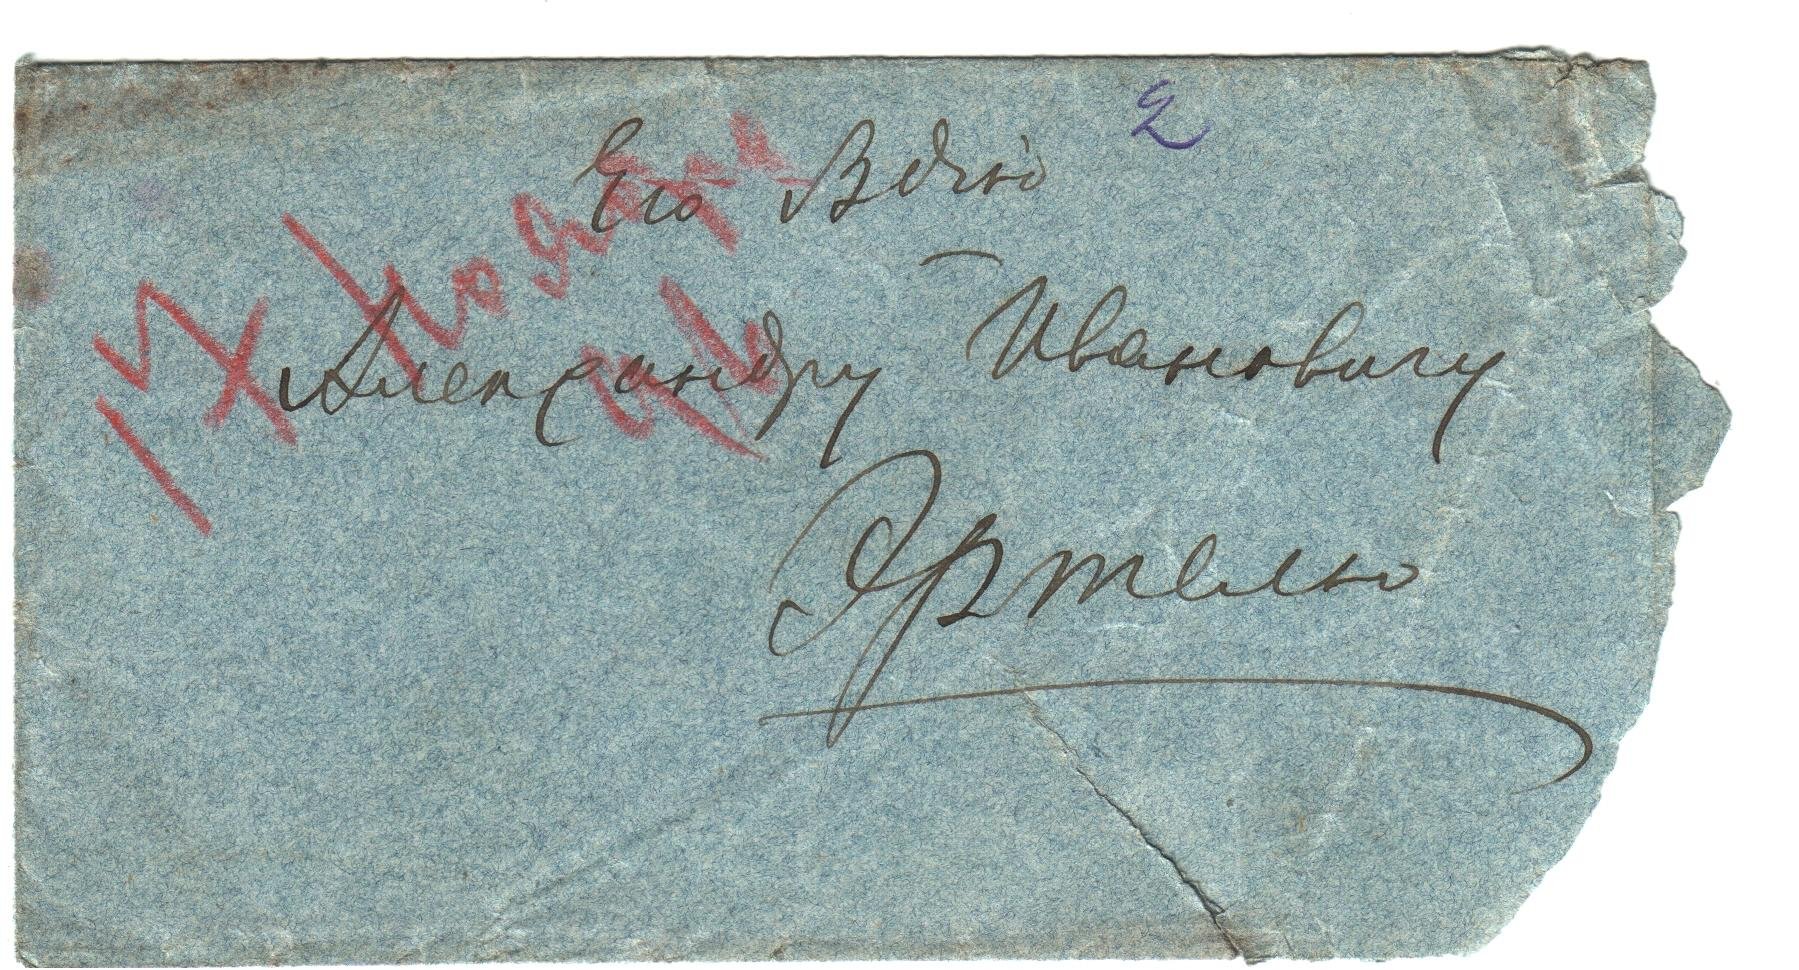 2
Его Вдію
Александру Ивановичу
Эртелю
17 ноября
96